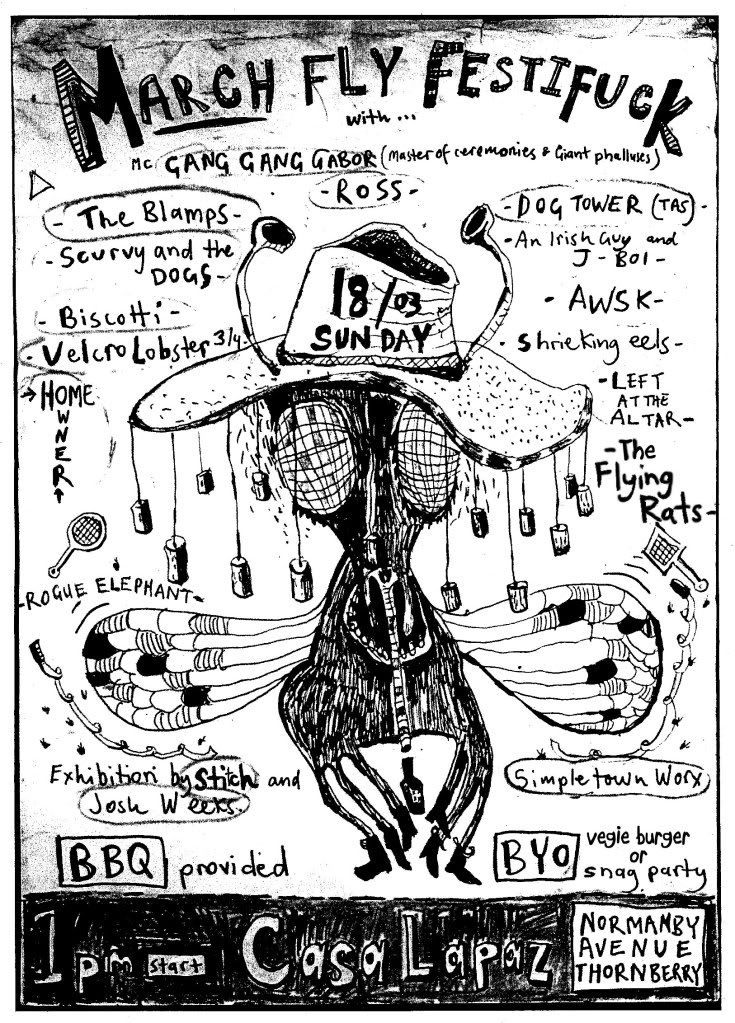 MARCH FLY FESTIFUCK
with...
MC GANG GANG GABOR (Master of ceremonies & Giant phalluses)
- ROSS -
- The Blamps -
- Scurvy and the
DOGS -
- Biscotti -
- Velcro Lobster 3/4 -
→ HOME
OWNER
- ROGUE ELEPHANT -
18/03
SUNDAY
- DOG TOWER (TAS) -
- An Irish Guy and
J-BOI -
- AWSK -
- Shrieking eels -
- LEFT
AT THE
ALTAR -
- The
Flying
Rats -
Exhibition by Stitch and
Josh Weeks.
Simpletown Worx
BBQ provided
BYO vegie burger
or
snag party
1pm start Casa Lapaz
NORMANBY
AVENUE
THORNBERRY